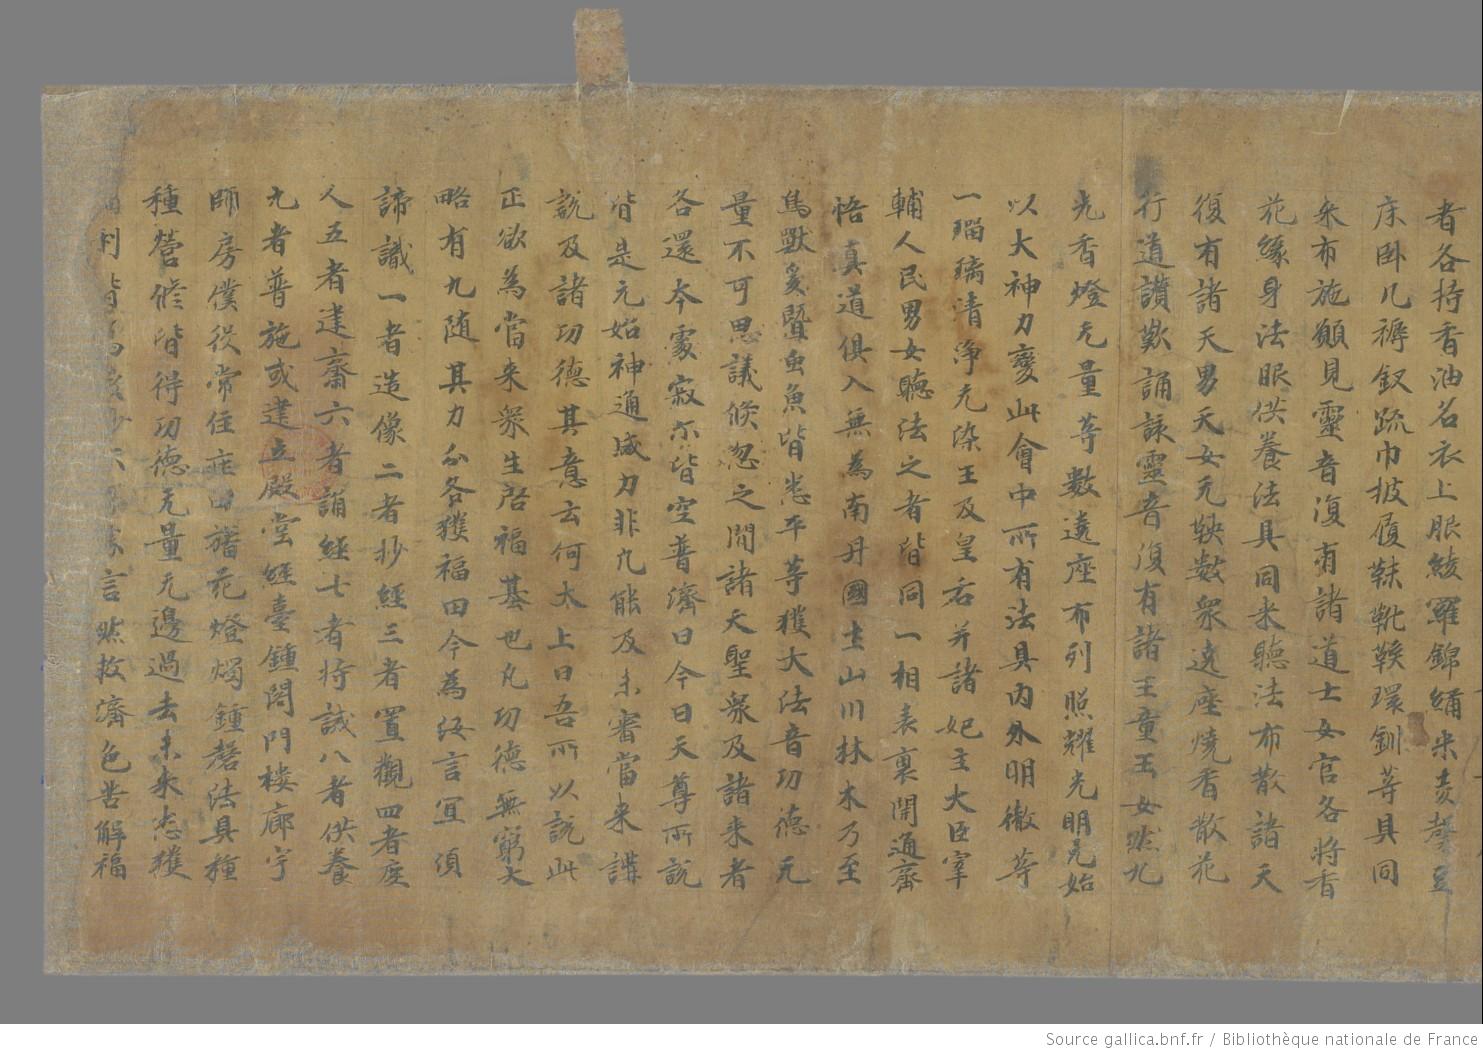 者各持香油名衣上服綾羅錦繡米麦
床卧几褥釵疏巾披履靺靴鞋環釧等具同
来布施願見靈音復有諸道士女官各將香
花緣身法眼供養法具同来聽法布散諸天
復有諸天男天女无鞅數衆遶座燒香散花
行道讃歎誦詠靈音復有諸王童玉女然九
光香燈无量等數遶座布列照耀光明元始
以大神力變此會中所有法具内外明徹等
一瑙璃清淨无染王及皇后并諸妃主大臣宰
輔人民男女聽法之者皆同一相表裏開通齊
悟真道俱入無為南丹國土山川林木乃至
鳥獸爰暨虫魚皆悉平等獲大法音功德无
量不可思議倏忽之間諸天聖衆及諸来者
各還本處寂尓皆空普濟曰今日天尊所説
皆是元始神通威力非凡能及未審當来講
説及諸功德其意云何太上曰吾所以説此
正欲為當来衆生启福基也凡功德無窮大
略有九随其力分各獲福田今為汝言宜須
諦識一者造像二者抄經三者置觀四者度
人五者建齋六者誦經七者持誡八者供養
九者普施或建立殿堂經臺鍾閣門樓廊宇
師房僕役常住庄田 花燈燭鍾磬法具種
種營修皆得功德无量无邊過去未来悉獲
言然救濟危苦解福
Source gallica.bnf.fr / Bibliothèque nationale de France